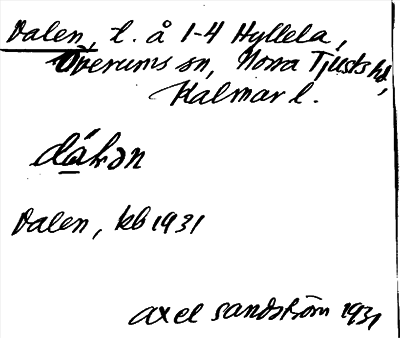 Dalen, t. å 1-4 Hyllela,
Överums sn, Norra Tjusts hd,
Kalmar l.
Dalen, kb 1931
Axel Sandström 1931